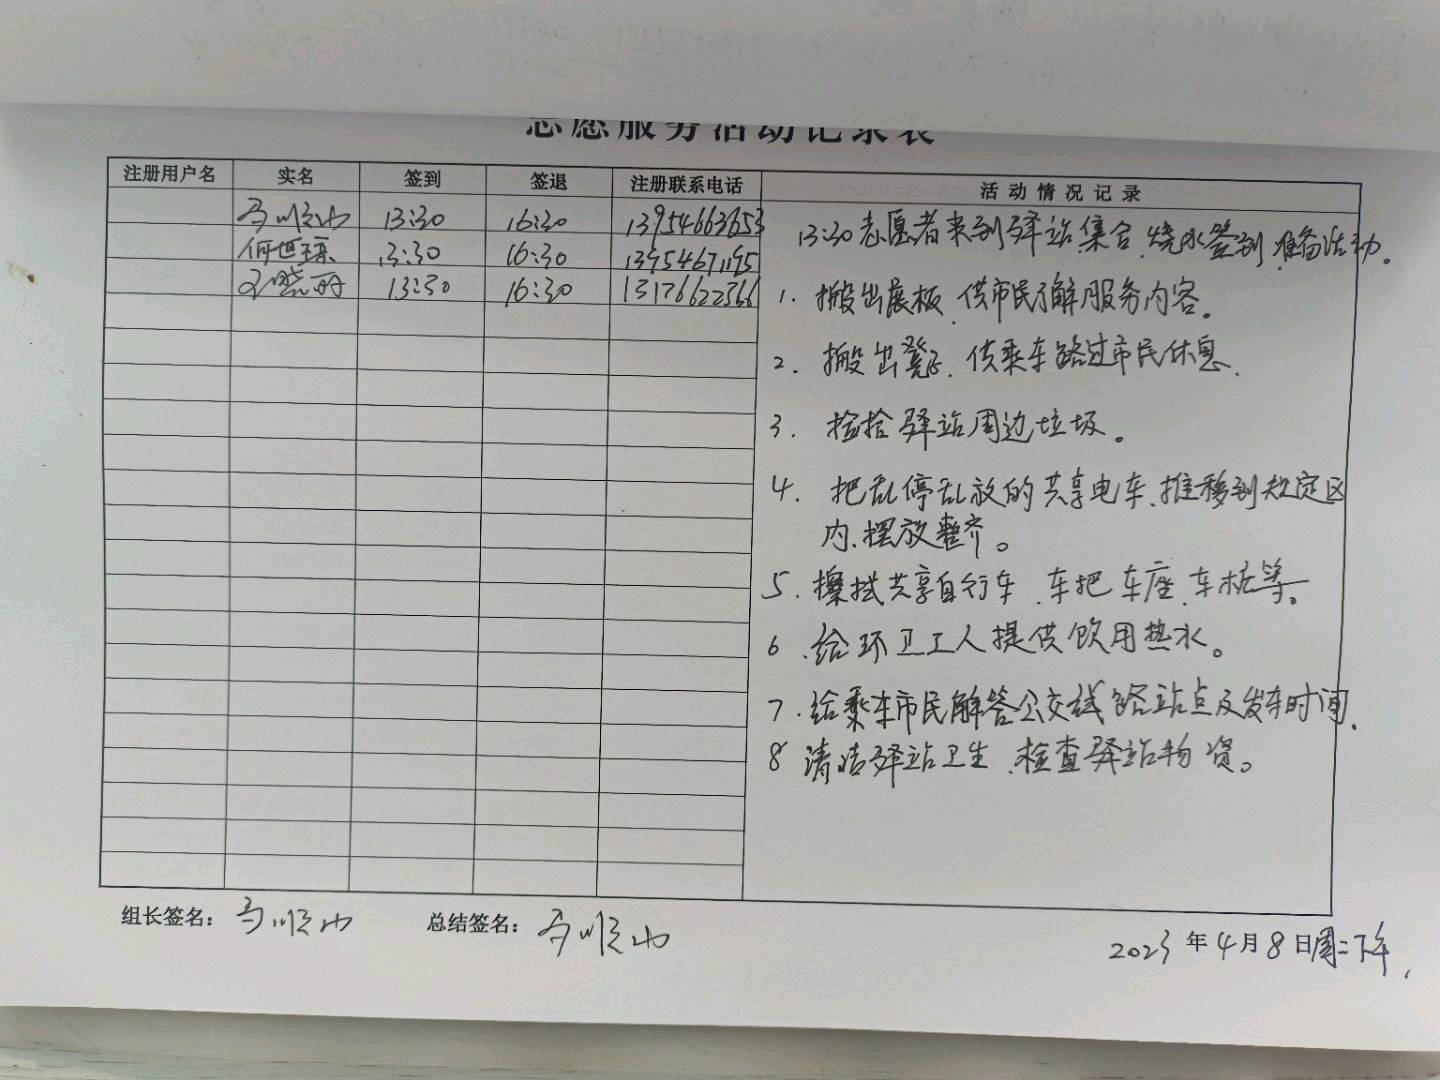 志愿服务活动记录表
注册用户名 实名 签到 签退 注册联系电话 活动情况记录
马顺山 13:30 16:30 13954663653
何世 13:30 16:30 13954671195
王晓丽 13:30 16:30 13176622366
13:30志愿者来到驿站集合、烧水签到、准备活动。
1. 搬出展板、供市民了解服务内容。
2. 搬出凳子、供乘车路过市民休息.
3. 捡拾驿站周边垃圾。
4. 把乱停乱放的共享电车、推移到规定区
内、摆放整齐。
5. 擦拭共享自行车、车把车座、车桩等。
6、给环卫工人提供饮用热水。
7.给乘车市民解答公交线路站点及发车时间.
8 清洁驿站卫生、检查驿站物资。
组长签名: 马顺山 总结签名: 马顺山
2023 年 4 月 8 日周二下午.